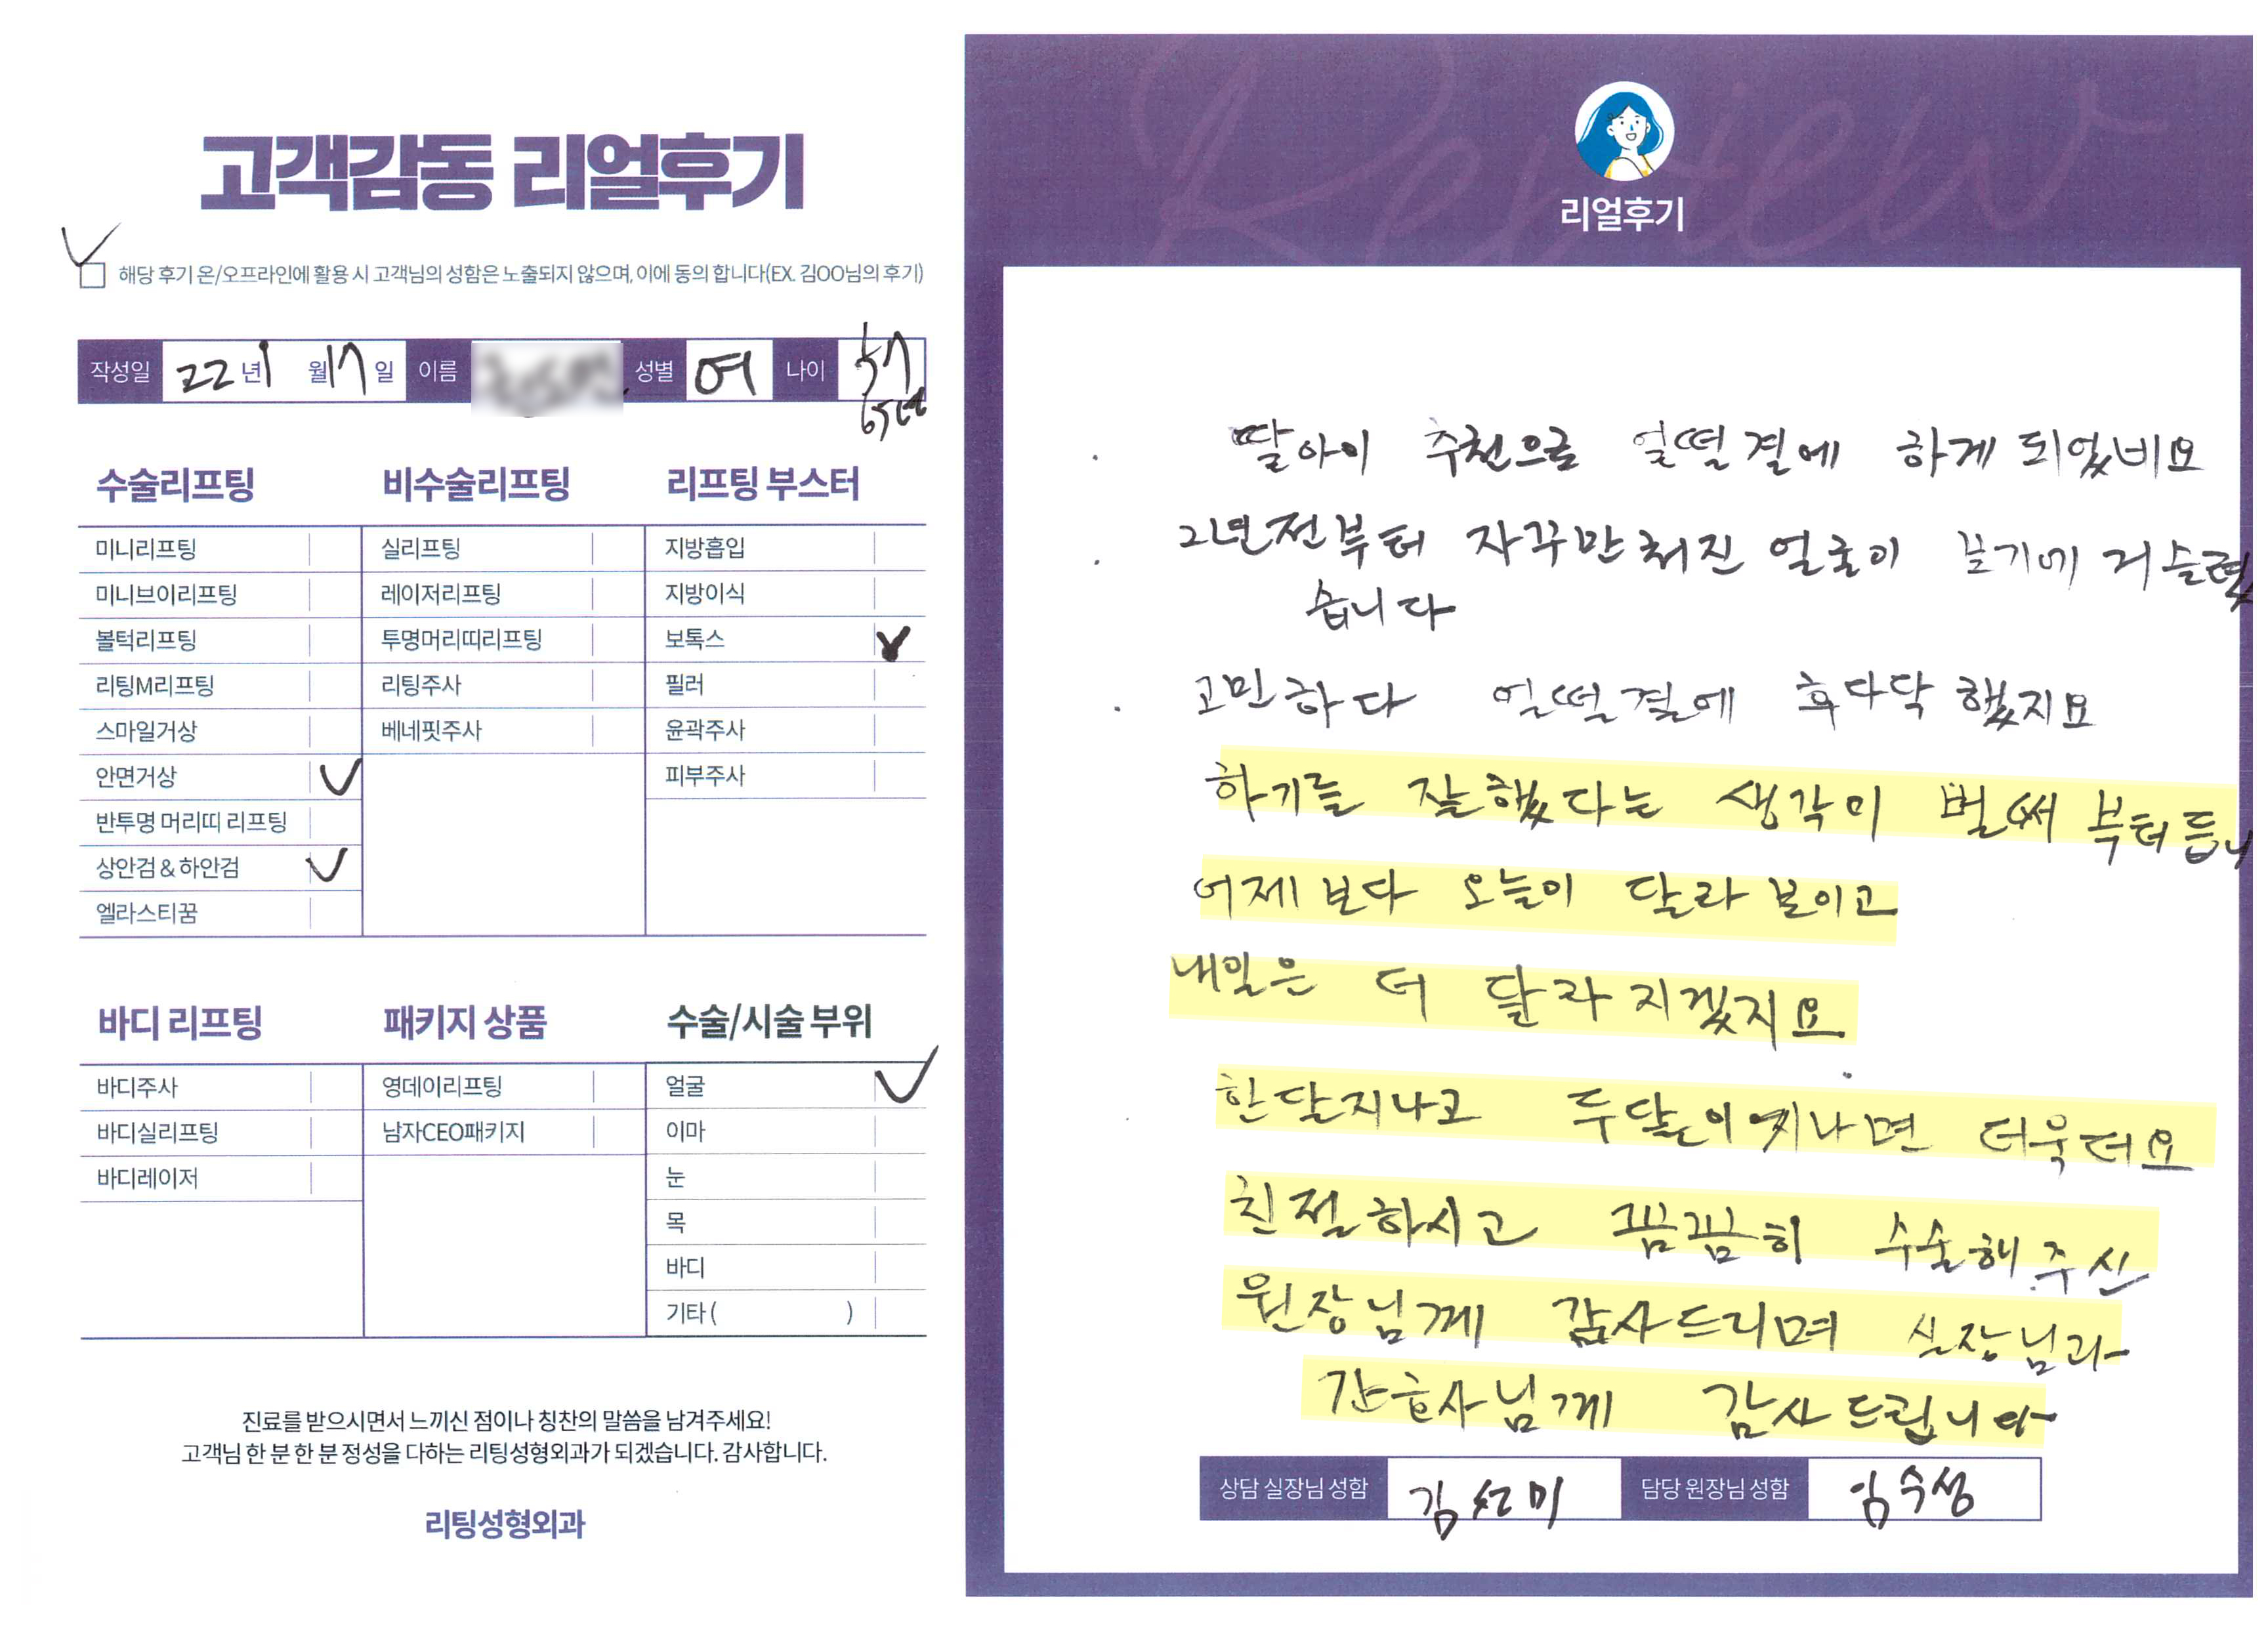 고객감동 리얼후기
해당 후기 온/오프라인에 활용 시 고객님의 성함은 노출되지 않으며, 이에 동의 합니다(EX. 김OO님의 후기)
작성일 22년 1월 17일 이름 성별 여 나이 57
65년
수술리프팅
미니리프팅
미니브이리프팅
볼턱리프팅
리팅M리프팅
스마일거상
안면거상
반투명 머리띠 리프팅
상안검 & 하안검
엘라스티꿈
비수술리프팅
실리프팅
레이저리프팅
투명머리띠리프팅
리팅주사
베네핏주사
리프팅 부스터
지방흡입
지방이식
보톡스
필러
윤곽주사
피부주사
바디 리프팅
바디주사
바디실리프팅
바디레이저
패키지 상품
영데이리프팅
남자CEO패키지
수술/시술 부위
얼굴
이마
눈
목
바디
기타 ( )
진료를 받으시면서 느끼신 점이나 칭찬의 말씀을 남겨주세요!
고객님 한 분 한 분 정성을 다하는 리팅성형외과가 되겠습니다. 감사합니다.
리팅성형외과
Review
리얼후기
딸아이 추천으로 얼떨결에 하게 되었네요
2년전부터 자꾸만 처진 얼굴이 보기에 거슬렸
습니다
고민하다 얼떨결에 후다닥 했지요
하기를 잘했다는 생각이 벌써부터 듭니
어제보다 오늘이 달라 보이고
내일은 더 달라지겠지요
한달지나고 두달이 지나면 더욱더요
친절하시고 꼼꼼히 수술해 주신
원장님께 감사드리며 실장님과
간호사님께 감사드립니다
상담 실장님 성함 김선미 담당 원장님 성함 김수성